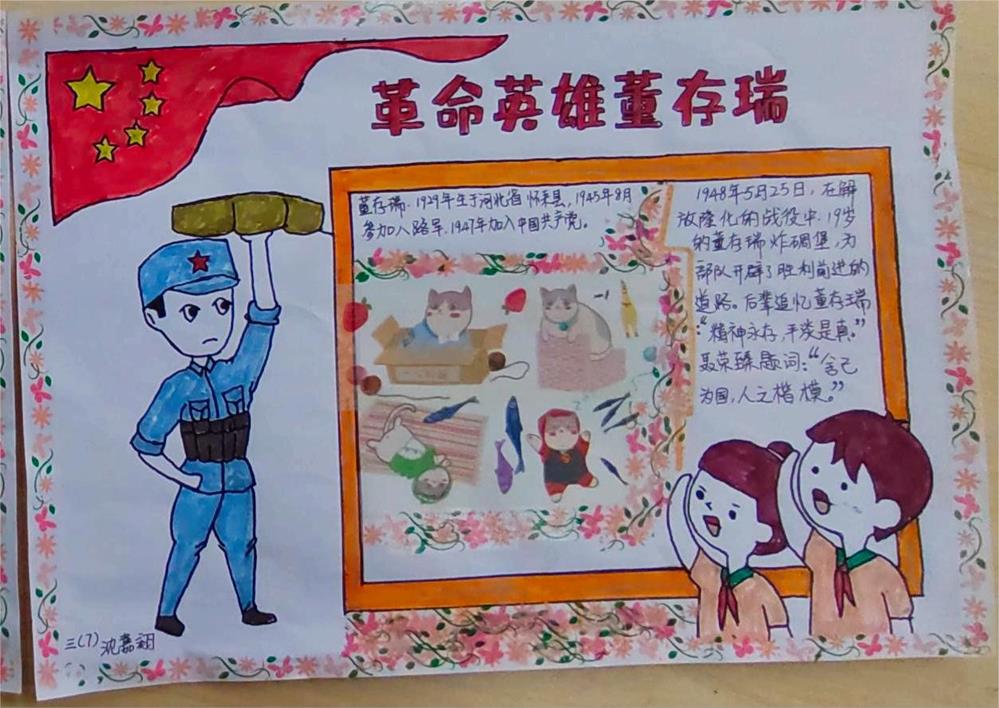 革命英雄董存瑞
董存瑞,1929年生于河北省怀来县,1945年8月
参加八路军,1947年加入中国共产党。
1948年5月25日,在解
放隆化的战役中,19岁
的董存瑞炸碉堡,为
部队开辟了胜利前进的
道路。后辈追忆董存瑞
:“精神永存,平淡是真。”
聂荣臻题词:“舍己
为国,人之楷模。”
三(7)沈嘉翊